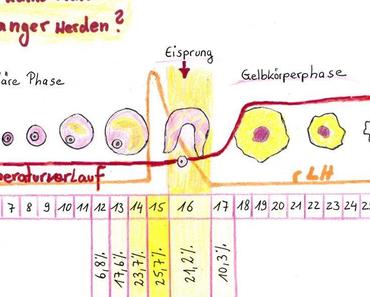 anger werden?
Eisprung
äre Phase
Gelbkörperphase
eraturverlauf
LH
7 8 9 10 11 12 13 14 15 16 17 18 19 20 21 22 23 24 25
6,8% 17,6% 23,7% 25,7% 21,2% 10,3%